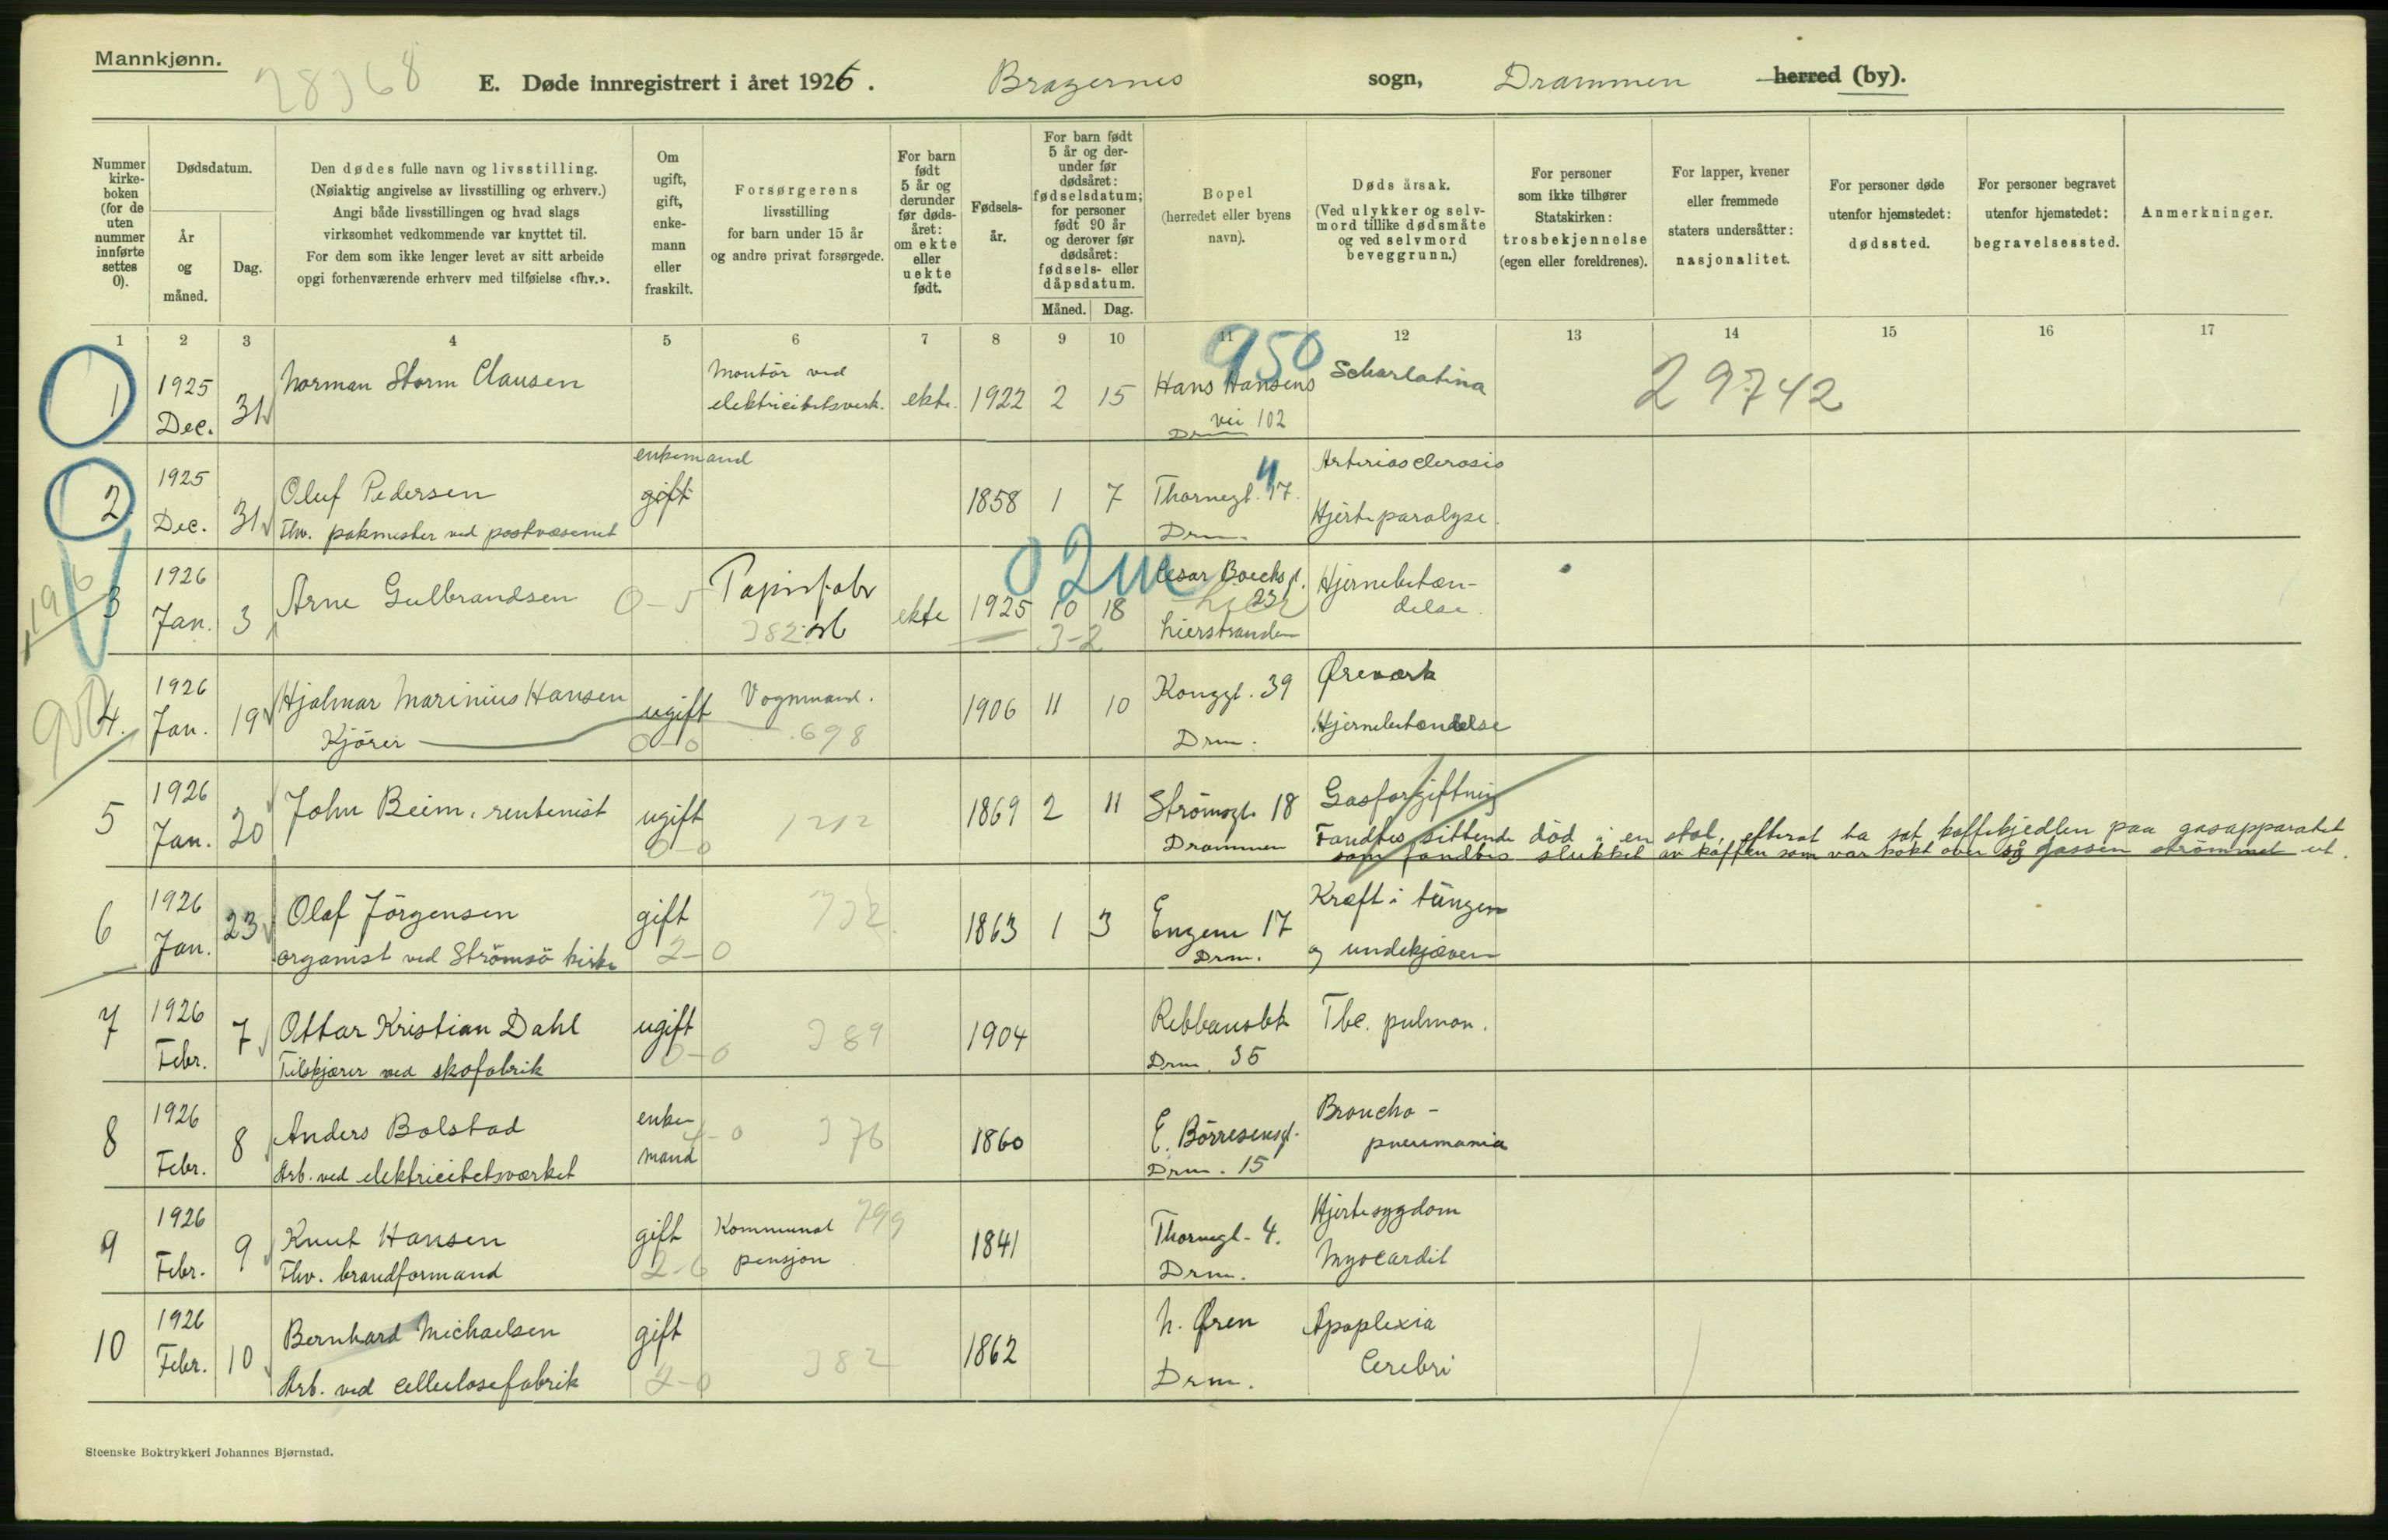 Mannkjønn.
28368
E. Døde innregistrert i året 1926.
Bragernes sogn, Drammen herred (by).
Nummer kirke-boken (for de uten nummer innførte settes 0).
Dødsdatum.
År og måned.
Dag.
Den dødes fulle navn og livsstilling.
(Nøiaktig angivelse av livsstilling og erhverv.)
Angi både livsstillingen og hvad slags
virksomhet vedkommende var knyttet til.
For dem som ikke lenger levet av sitt arbeide
opgi forhenværende erhverv med tilføielse «fhv.».
Om ugift, gift, enke-mann eller fraskilt.
Forsørgerens
livsstilling
for barn under 15 år
og andre privat forsørgede.
For barn født 5 år og derunder før døds-året: om ekte eller uekte født.
Fødsels-år.
For barn født 5 år og der-under før dødsåret: fødselsdatum; for personer født 90 år og derover før dødsåret: fødsels- eller dåpsdatum.
Måned. Dag.
Bopel
(herredet eller byens
navn).
Døds årsak.
(Ved ulykker og selv-
mord tillike dødsmåte
og ved selvmord
beveggrunn.)
For personer
som ikke tilhører
Statskirken:
trosbekjennelse
(egen eller foreldrenes).
For lapper, kvener
eller fremmede
staters undersåtter:
nasjonalitet.
For personer døde
utenfor hjemstedet:
dødssted.
For personer begravet
utenfor hjemstedet:
begravelsessted.
Anmerkninger.
1 2 3 4 5 6 7 8 9 10 11 12 13 14 15 16 17
950
1 1925 Dec. 31 Norman Storm Clausen
Montör ved elektricitetsverk. ekte. 1922 2 15
Hans Hansens vei 102 Drm
Scharlatina
29742
2 1925 Dec. 31 Oluf Pedersen
Fhv. pakmester ved postvæsenet
enkemand gift 1858 1 7
Thornegt. 17. 4 Drm.
Arteriosclerosis
Hjerteparalyse.
02m
3 1926 Jan. 3 Arne Gulbrandsen
0-5 Papirfabr 382 ekte 1925 10 18
3-2
Cesar Boecks gt. 23 Lier
Lierstranden
Hjernebetæn-
delse.
4. 1926 Jan. 19 Hjalmar Marinius Hansen
Kjörer
ugift 0-0 Vognmand. 698 1906 11 10
Konggt. 39 Drm.
Öreværk
Hjernebetændelse
5 1926 Jan. 20 John Beim, rentenist
ugift 0-0 1212 1869 2 11
Strömsgt. 18 Drammen
Gasforgiftning
Fandtes sittende död i en stol, efterat ha sat kaffekjedlen paa gasapparatet
som fandtes slukket av kaffen som var kokt over og gassen strömmet ut.
6 1926 Jan. 23 Olaf Jörgensen
organist ved Strömsö kirke
gift 2-0 732 1863 1 3
Engene 17 Drm.
Kræft i tungen
og undekjæven
7 1926 Febr. 7 Ottar Kristian Dahl
Tilskjærer ved skofabrik
ugift 0-0 389 1904
Rebbansbk Drm. 35
Tbc. pulmon.
8 1926 Febr. 8 Anders Bolstad
Arb. ved elektricitetsværket
enke mand 4-0 376 1860
E. Börresensgt. Drm. 15
Broncho-
pneumonia
9 1926 Febr. 9 Knut Hansen
Fhv. brandformand
gift 2-6 Kommunal pensjon 799 1841
Thornegt. 4. Drm.
Hjertesygdom
Myocardit
10 1926 Febr. 10 Bernhard Michaelsen
Arb. ved cellulosefabrik
gift 2-0 382 1862
N. Øren Drm.
Apoplexia
Cerebri
Steenske Boktrykkeri Johannes Bjørnstad.